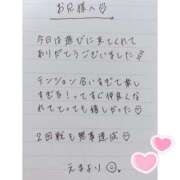 お兄様へ♡
今日は遊びに来てくれて
ありがとうございました♡
テンション合いすぎて楽し
すぎる！ってすぐ仲良くな
れてとっても嬉しかった♡
2回戦も無事達成♡
えまより☺